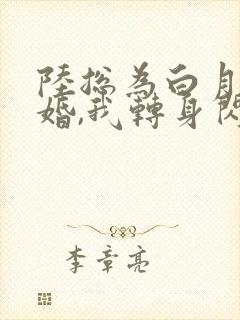 陸總為白月
婚,我轉身閃
李章亮